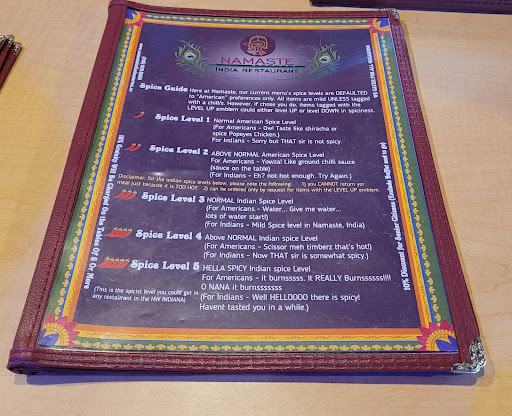 NAMASTE
INDIA RESTAURANT
Spice Guide Here at Namaste, our current menu's spice levels are DEFAULTED
to "American" preferences only. All items are mild UNLESS tagged
with a chili/s. However, if chose you do, items tagged with the
LEVEL UP emblem could either level UP or level DOWN in spiciness.
Spice Level 1 Normal American Spice Level
(For Americans - Ow! Taste like shiracha or
spice Popeyes Chicken.)
For Indians - Sorry but THAT sir is not spicy.
Spice Level 2 ABOVE NORMAL American Spice Level
(For Americans - Yowza! Like ground chilli sauce
(sauce on the table)
(For Indians - Eh? not hot enough. Try Again.)
Disclaimer: for the Indian spice levels below, please note the following: 1) you CANNOT return yor
meal just because it is TOO HOT 2) can be ordered only by request for items with the LEVEL UP emblem.
Spice Level 3 NORMAL Indian Spice Level
(For Americans - Water... Give me water...
lots of water start!)
(For Indians - Mild Spice level in Namaste, India)
Spice Level 4 Above NORMAL Indian spice Level
(For Americans - Scissor meh timberz that's hot!)
(For Indians - Now THAT sir is somewhat spicy.)
Spice Level 5 HELLA SPICY Indian spice Level
For Americans - it burnsssss. It REALLY Burnssssss!!!!
O NANA it burnssssssss
(This is the spicist level you could get in
any restaurant in the NW INDIANA)
(For Indians - Well HELLOOOO there is spicy!
Havent tasted you in a while.)
WE CATER FOR ALL OCCASIONS
10% Discount for Senior Citizens
Gratuity Will Be Charged On the Tables Of 5 Or More